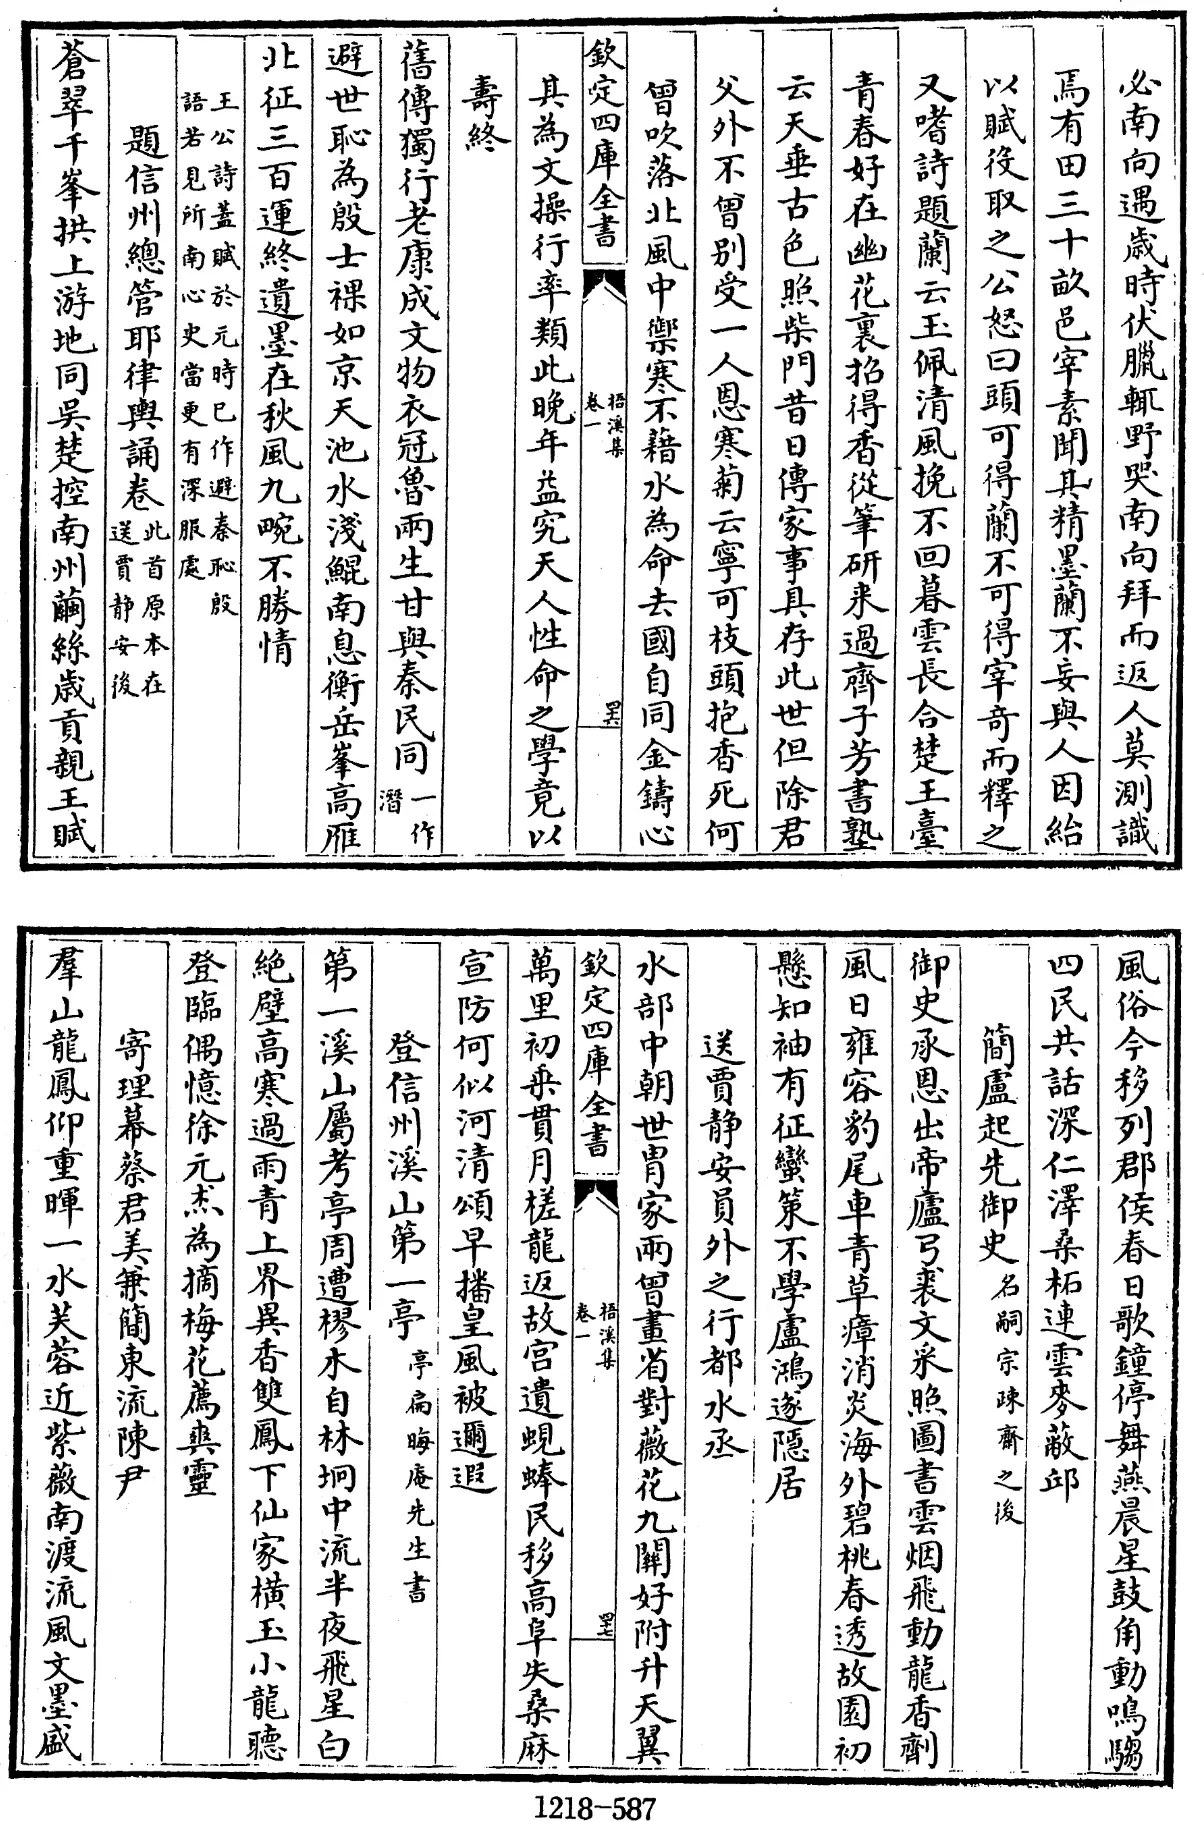 必南向遇歳時伏臘輒野哭南向拜而返人莫測識
焉有田三十畝邑宰素聞其精墨蘭不妄與人因紿
以賦役取之公怒曰頭可得蘭不可得宰竒而釋之
又嗜詩題蘭云玉佩清風挽不回暮雲長合楚王臺
青春好在幽花裏招得香從筆研来過齊子芳書塾
云天垂古色照柴門昔日傳家事具存此世但除君
父外不曽别受一人恩寒菊云寧可枝頭抱香死何
曽吹落北風中禦寒不藉水為命去國自同金鑄心
欽定四庫全書
梧溪集
卷一
四六
其為文操行率類此晚年益究天人性命之學竟以
壽終
舊傳獨行老康成文物衣冠魯兩生甘與秦民同一作潛
避世恥為殷士祼如京天池水淺鯤南息衡岳峯高雁
北征三百運終遺墨在秋風九畹不勝情
王公詩蓋賦於元時已作避秦恥殷
語若見所南心史當更有深服處
題信州總管耶律輿誦卷此首原本在送賈静安後
蒼翠千峯拱上游地同吳楚控南州繭絲歳貢親王賦
風俗今移列郡侯春日歌鐘停舞燕晨星鼓角動鳴騶
四民共話深仁澤桑柘連雲麥蔽邱
簡盧起先御史名嗣宗疎齋之後
御史承恩出帝廬弓裘文采照圖書雲烟飛動龍香劑
風日雍容豹尾車青草瘴消炎海外碧桃春透故園初
懸知袖有征蠻策不學盧鴻逐隱居
送賈静安員外之行都水丞
水部中朝世胄家兩曽畫省對薇花九關好附升天翼
欽定四庫全書
梧溪集
卷一
四七
萬里初乗貫月槎龍返故宫遺蜆蜯民移高阜失桑麻
宣防何似河清頌早播皇風被邇遐
登信州溪山第一亭亭扁晦庵先生書
第一溪山屬考亭周遭樛木自林坰中流半夜飛星白
絶壁高寒過雨青上界異香雙鳳下仙家横玉小龍聽
登臨偶憶徐元杰為摘梅花薦爽靈
寄理幕蔡君美兼簡東流陳尹
羣山龍鳳仰重暉一水芙蓉近紫薇南渡流風文墨盛
1218-587